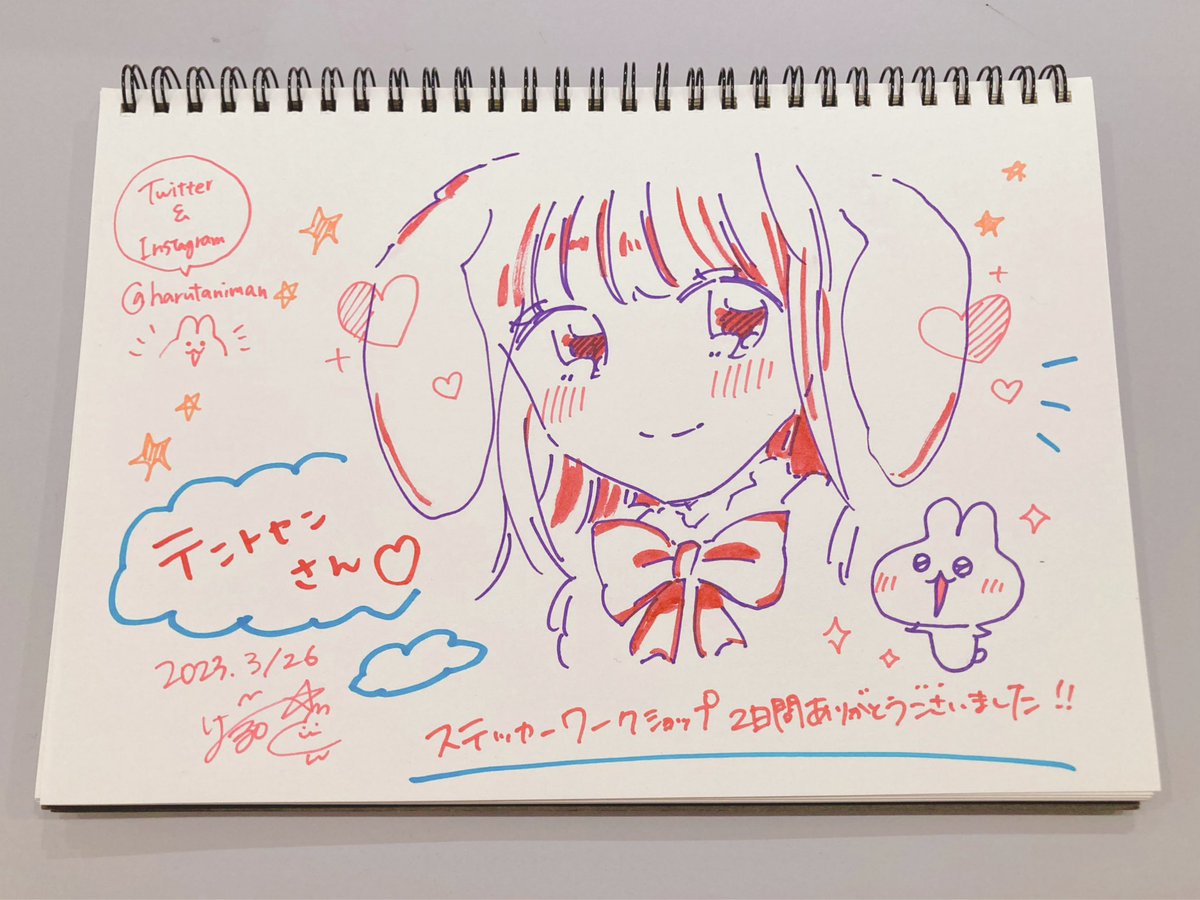 Twitter
&
Instagram
@harutaniman
テントセン
さん
2023.3/26
ステッカーワークショップ 2日間ありがとうございました!!